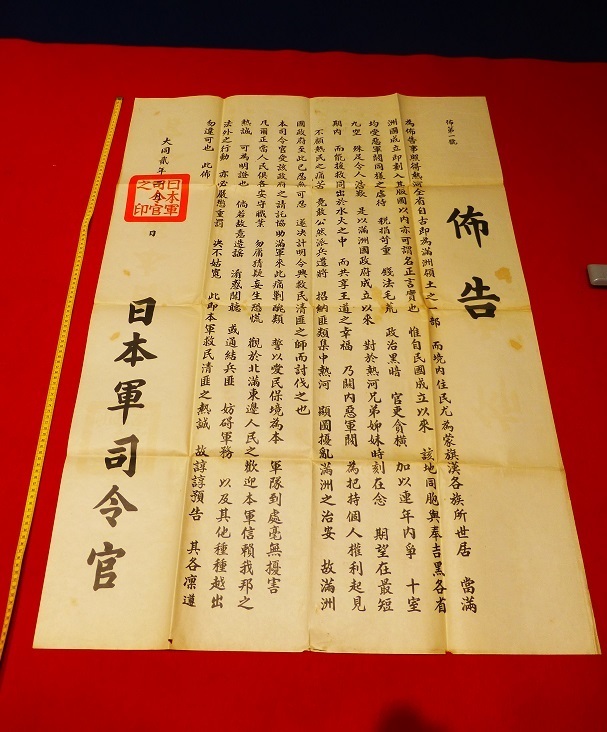 佈第一號
佈告
為佈告事照得熱河全省自古即為滿洲領土之一部　而境內住民尤為蒙旗漢各族所世居　當滿
洲國成立即劃入其版圖以內亦可謂名正言實也　惟自民國成立以來　該地同胞與奉吉黑各省
均受惡軍閥同樣之虐待　稅捐苛重　錢法毛荒　政治黑暗　官吏貪橫　加以連年內爭　十室
九空　殊足令人悲歎　是以滿洲國政府成立以來　對於熱河兄弟姊妹時刻在念　期望在最短
期內　而能援救同出於水火之中　而共享王道之幸福　乃關內惡軍閥　為把持個人權利起見
不顧熱民之痛苦　竟敢公然派兵遣將　招納匪類集中熱河　顯圖擾亂滿洲之治安　故滿洲
國政府至此已忍無可忍　遂決計明令興救民清匪之師而討伐之也
本司令官受該政府之請託協助滿軍來此痛剿醜類　誓以愛民保境為本　軍隊到處毫無擾害
凡爾正當人民俱各安守職業　勿庸猜疑妄生恐慌　觀於北滿東邊人民之歡迎本軍信賴我邦之
熱誠　可為明證也　倘若故意造謠　淆惑聞聽　或通結兵匪　妨碍軍務　以及其他種種越出
法外之行動　亦必嚴懲重罰　決不姑寬　此即本軍救民清匪之熱誠　故諄諄預告　其各凜遵
勿違可也　此佈
大同貳年　月　日
日本軍司令官之印
日本軍司令官